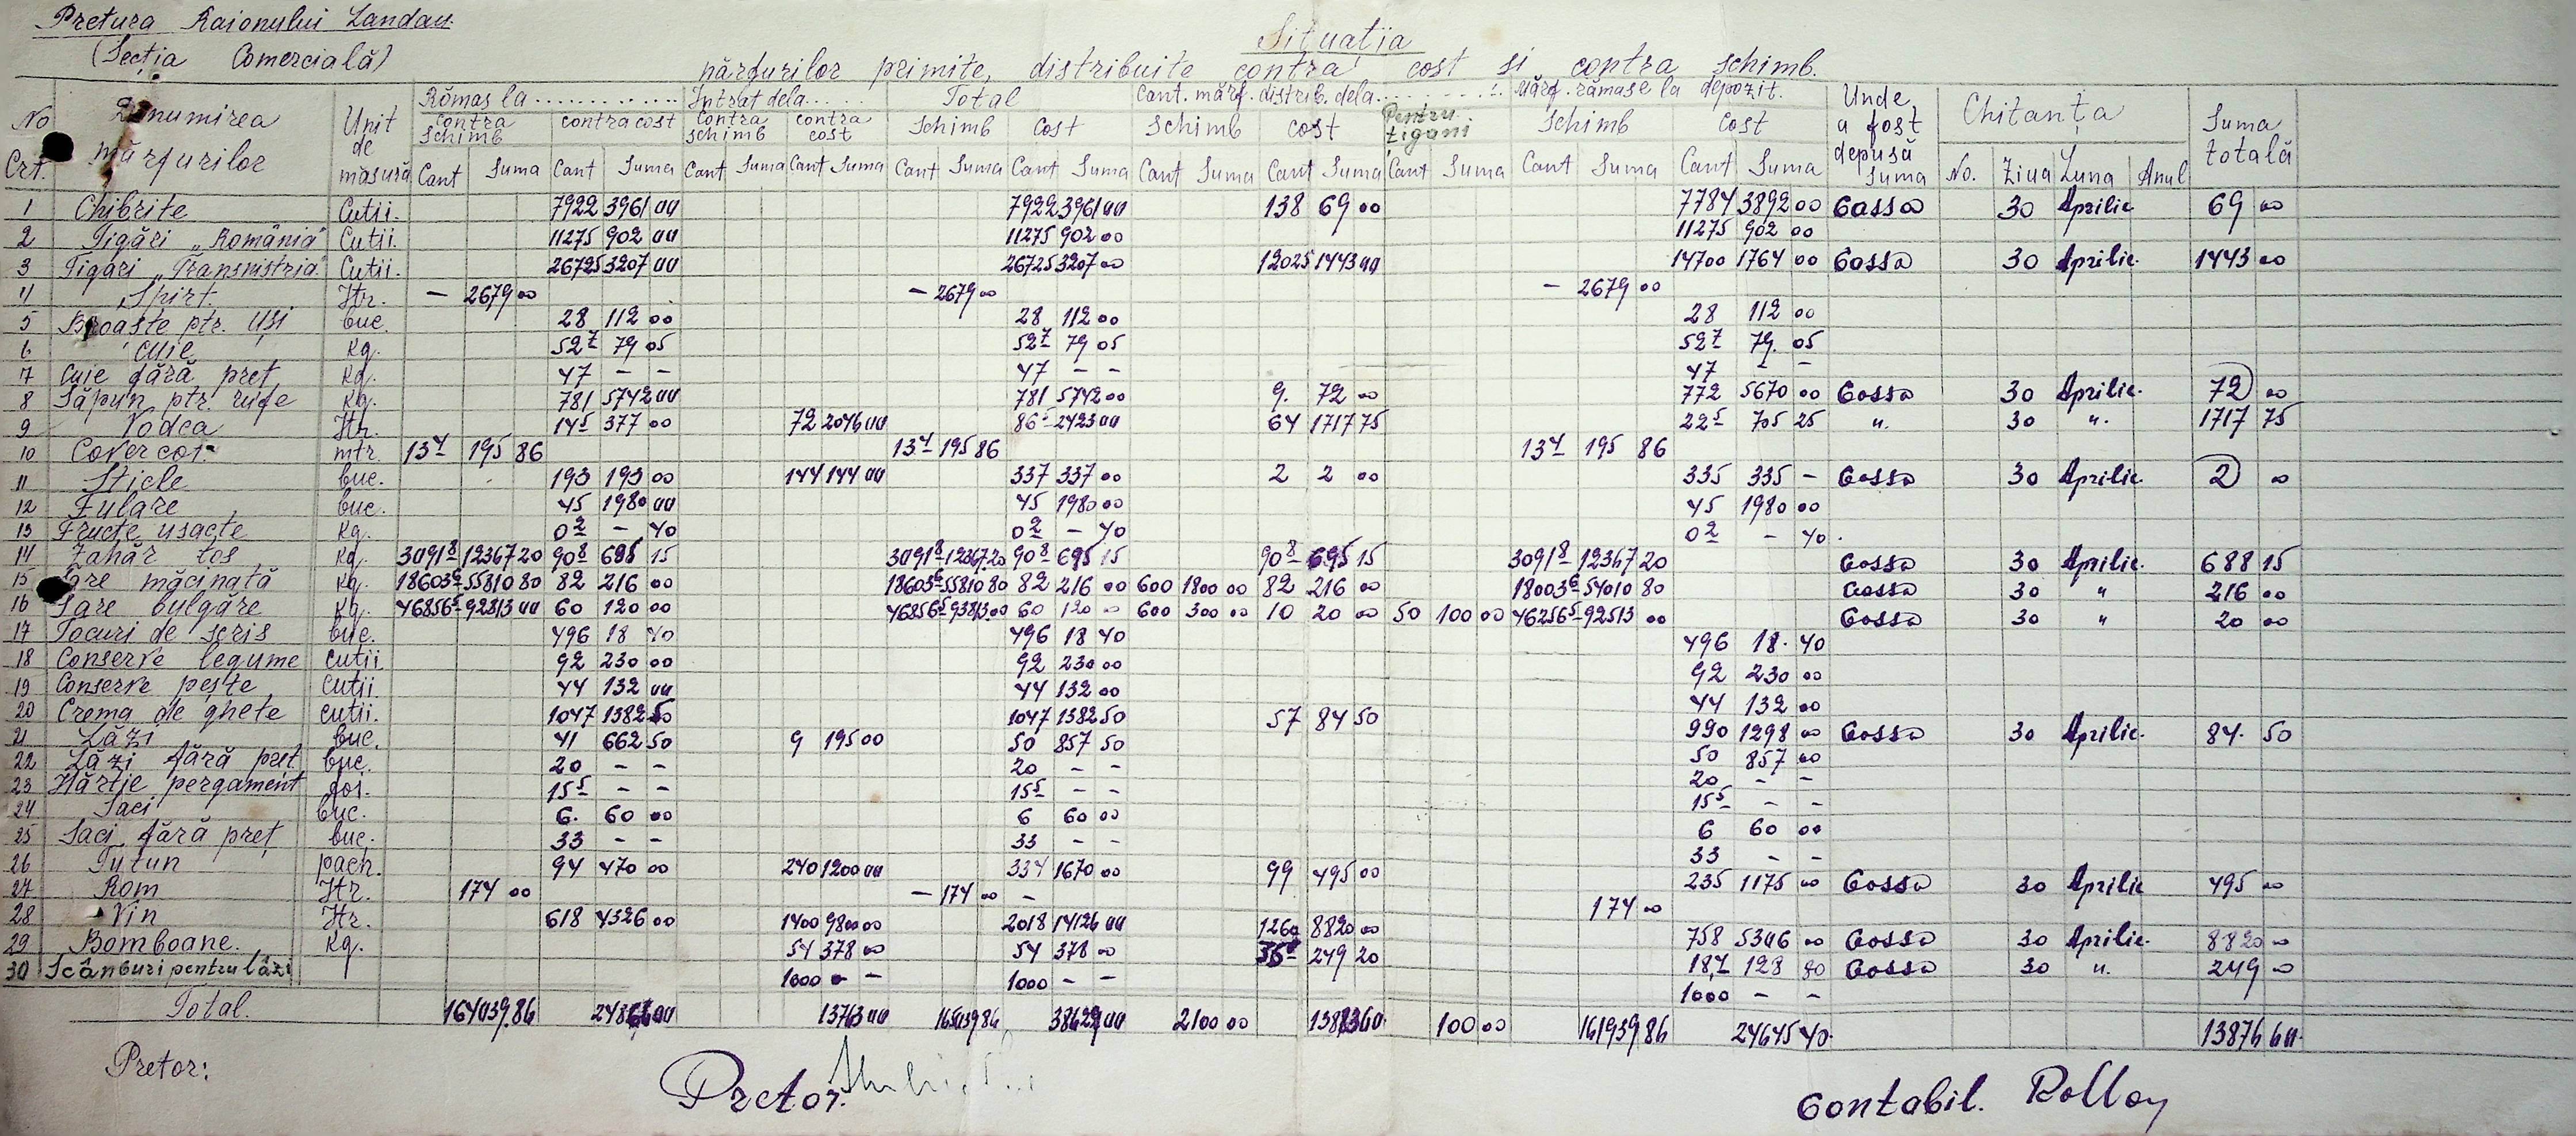 Pretura Raionului Landau.
(Secția Comercială)
Situația
mărfurilor primite, distribuite contra cost si contra schimb.
No Crt. Denumirea mărfurilor Unit de masură Rămas la ............ Intrat dela ..... Total Cant. mărf. distrib. dela ......... Mărf. rămase la depozit. Unde a fost depusă suma Chitanța Suma totală
contra schimb contra cost contra schimb contra cost Schimb Cost Schimb Cost Pentru țigani Schimb Cost
Cant Suma Cant Suma Cant Suma Cant Suma Cant Suma Cant Suma Cant Suma Cant Suma Cant Suma Cant Suma Cant Suma No. Ziua Luna Anul
1 Chibrite Cutii. 7922 3961 00 7922 3961 00 138 69 00 7784 3892 00 Cassa 30 Aprilie 69 00
2 Țigări „România" Cutii. 11275 902 00 11275 902 00 11275 902 00
3 Țigări „Transnistria" Cutii. 26725 3207 00 26725 3207 00 12025 1443 00 14700 1764 00 Cassa 30 Aprilie. 1443 00
4 Spirt. ltr. – 2679 00 – 2679 00 – 2679 00
5 Broaște ptr. Uși buc. 28 112 00 28 112 00 28 112 00
6 Cuie Kg. 52 7 79 05 52 7 79 05 52 7 79. 05
7 Cuie fără preț Kg. 47 – – 47 – – 47 – –
8 Săpun ptr. rufe Kg. 781 5742 00 781 5742 00 9. 72 00 772 5670 00 Cassa 30 Aprilie. 72 00
9 Vodca ltr. 14 5 377 00 72 2046 00 86 5 2423 00 64 1717 75 22 5 705 25 " 30 " 1717 75
10 Covercot. mtr. 13 4 195 86 13 4 195 86 13 4 195 86
11 Sticle buc. 193 193 00 144 144 00 337 337 00 2 2 00 335 335 – Cassa 30 Aprilie. 2 00
12 Fulare buc. 45 1980 00 45 1980 00 45 1980 00
13 Fructe usacte Kg. 0 2 – 40 0 2 – 40 0 2 – 40.
14 Zahăr tos Kg. 3091 8 12367 20 90 8 15 3091 8 12367.20 90 8 15 90 8 15 3091 8 12367 20 Cassa 30 Aprilie 688 15
15 măcinată Kg. 18603 6 55810 80 82 216 00 18603 6 55810 80 82 216 00 600 1800 00 82 216 00 18003 6 54010 80 Cassa 30 " 216 00
16 Sare bulgăre Kg. 46856 5 60 120 00 46856 5 60 120 00 600 300 00 10 20 00 50 100 00 46256 5 92513 00 Cassa 30 " 20 00
17 Tocuri de scris buc. 496 18 40 496 18 40 496 18. 40
18 Conserve legume cutii 92 230 00 92 230 00 92 230 00
19 Conserve pește cutii. 44 132 00 44 132 00 44 132 00
20 Crema de ghete cutii. 1047 1382 50 1047 1382 50 57 84 50 990 1298 00 Cassa 30 Aprilie. 84. 50
21 Lăzi buc. 41 662 50 9 195 00 50 857 50 50 857 00
22 Lăzi fără preț buc. 20 – – 20 – – 20 – –
23 Hărtie pergament 15 5 – – 15 5 – – 15 5 – –
24 Saci buc. 6. 60 00 6 60 00 6 60 00
25 Saci fără preț buc. 33 – – 33 – – 33 – –
26 Tutun pach. 94 470 00 240 1200 00 334 1670 00 99 495 00 235 1175 00 Cassa 30 Aprilie 495 00
27 Rom ltr. 174 00 – 174 00 – 174 00
28 Vin ltr. 618 4326 00 1400 9800 00 2018 14126 00 1260 8820 00 758 5306 00 Cassa 30 Aprilie. 8820 00
29 Bomboane. Kg. 54 378 00 54 378 00 249 20 18,4 128 80 Cassa 30 " 249 00
30 Scânburi pentru lăzi 1000 – – 1000 – – 1000 – –
Total. 13763 00 2100 00 100 00 161939 86 24645 40. 13876 60.
Pretor:
Pretor.
Contabil.